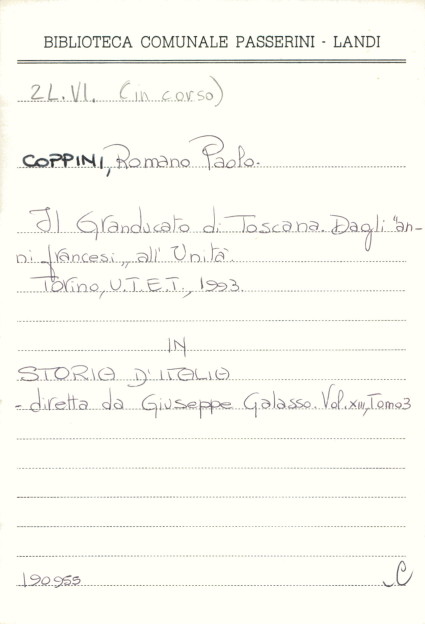 BIBLIOTECA COMUNALE PASSERINI - LANDI
2L.VI. (in corso)
COPPINI, Romano Paolo.
Il Granducato di Toscana. Dagli "an-
ni francesi„ all' Unità.
Torino, U.T.E.T., 1993.
IN
STORIA D'ITALIA
- diretta da Giuseppe Galasso. Vol. XIII, Tomo 3
190955